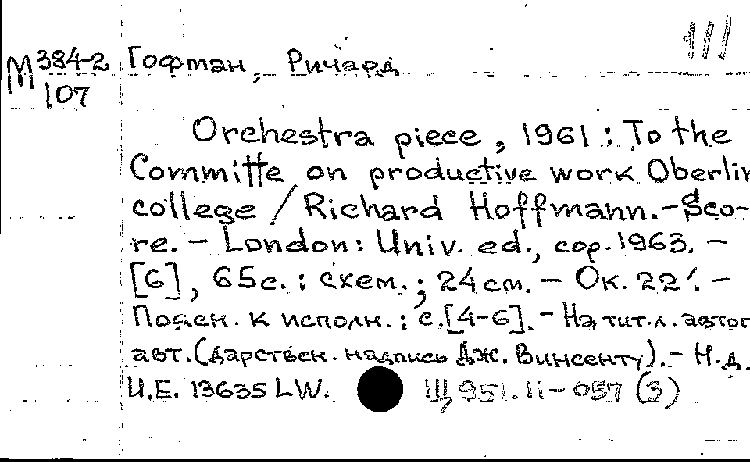 М 384-2 Гофман, Ричард
107
Orchestra piece, 1961 : To the
Committe on productive work Oberlin
college / Richard Hoffmann.-Sco-
re. - London: Univ. ed., cop. 1963. -
[6], 65с. : схем. ; 24cm. - Ок. 22'. -
Поясн. к исполн.: с.[4-6]. - На тит.л. автог
авт. (дарствен. надпись Дж. Винсенту). - Н.д.
U.E. 13635 LW.